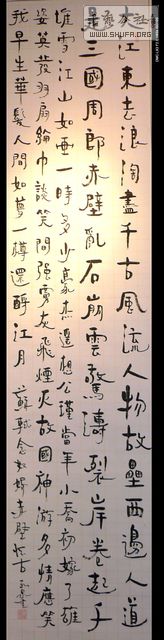 江東去浪淘盡千古風流人物故壘西邊人道
是三國周郎赤壁亂石崩雲驚濤裂岸卷起千
堆雪江山如畫一時多少豪杰遙想公瑾當年小喬初嫁了雄
姿英發羽扇綸巾談笑間強虜灰飛煙滅故國神游多情應笑
我早生華髮人間如夢一樽還酹江月 蘇軾念奴嬌赤壁懷古
www.SHUFA.ORG